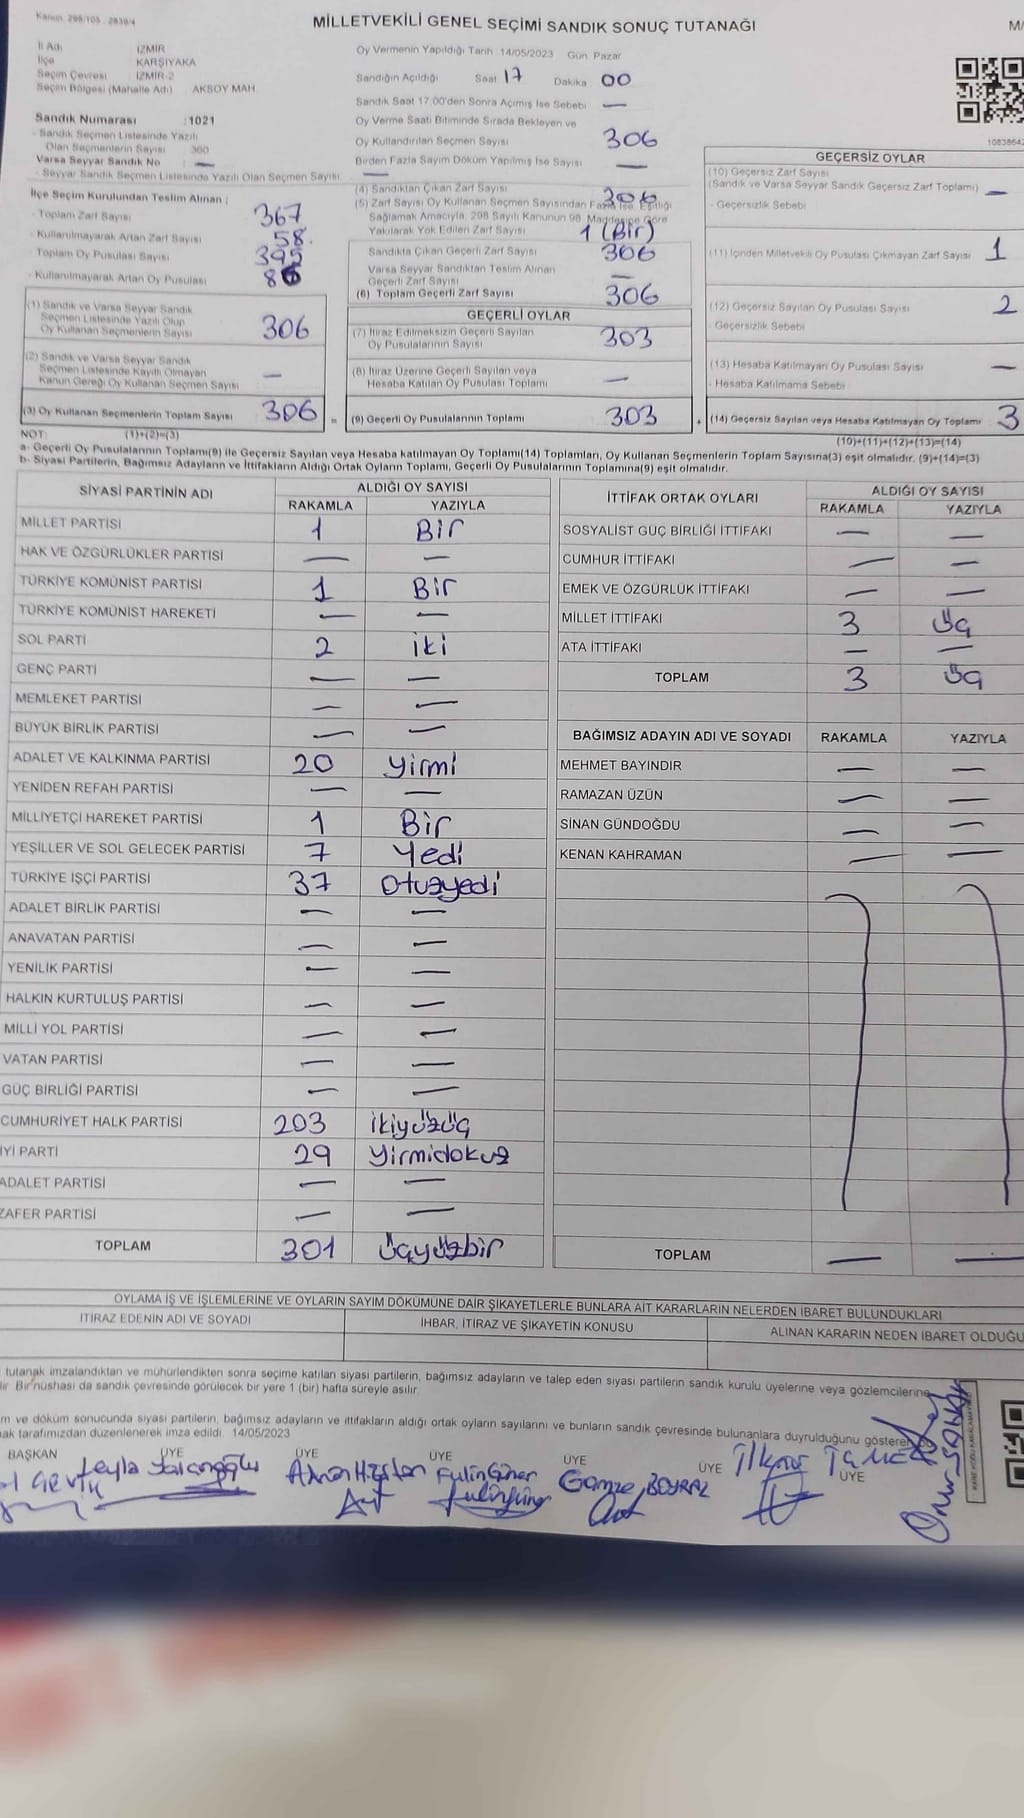 Kanun: 298/105 - 2839/4
MİLLETVEKİLİ GENEL SEÇİMİ SANDIK SONUÇ TUTANAĞI
İl Adı İZMİR
İlçe KARŞIYAKA
Seçim Çevresi İZMİR-2
Seçim Bölgesi (Mahalle Adı) AKSOY MAH.
Sandık Numarası : 1021
- Sandık Seçmen Listesinde Yazılı
Olan Seçmenlerin Sayısı 360
Varsa Seyyar Sandık No : —
- Seyyar Sandık Seçmen Listesinde Yazılı Olan Seçmen Sayısı : —
İlçe Seçim Kurulundan Teslim Alınan ;
- Toplam Zarf Sayısı 367
- Kullanılmayarak Artan Zarf Sayısı 58
- Toplam Oy Pusulası Sayısı 395
- Kullanılmayarak Artan Oy Pusulası
(1) Sandık ve Varsa Seyyar Sandık
Seçmen Listesinde Yazılı Olup
Oy Kullanan Seçmenlerin Sayısı 306
(2) Sandık ve Varsa Seyyar Sandık
Seçmen Listesinde Kayıtlı Olmayan
Kanun Gereği Oy Kullanan Seçmen Sayısı —
(3) Oy Kullanan Seçmenlerin Toplam Sayısı 306
(1)+(2)=(3)
Oy Vermenin Yapıldığı Tarih 14/05/2023 Gün Pazar
Sandığın Açıldığı Saat 17 Dakika 00
Sandık Saat 17:00'den Sonra Açılmış İse Sebebi —
Oy Verme Saati Bitiminde Sırada Bekleyen ve
Oy Kullandırılan Seçmen Sayısı 306
Birden Fazla Sayım Döküm Yapılmış İse Sayısı —
(4) Sandıktan Çıkan Zarf Sayısı 306
(5) Zarf Sayısı Oy Kullanan Seçmen Sayısından Fazla İse, Eşitliği
Sağlamak Amacıyla, 298 Sayılı Kanunun 98. Maddesine Göre
Yakılarak Yok Edilen Zarf Sayısı 1 (Bir)
Sandıkta Çıkan Geçerli Zarf Sayısı 306
Varsa Seyyar Sandıktan Teslim Alınan
Geçerli Zarf Sayısı —
(6) Toplam Geçerli Zarf Sayısı 306
GEÇERLİ OYLAR
(7) İtiraz Edilmeksizin Geçerli Sayılan
Oy Pusulalarının Sayısı 303
(8) İtiraz Üzerine Geçerli Sayılan veya
Hesaba Katılan Oy Pusulası Toplamı —
= (9) Geçerli Oy Pusulalarının Toplamı 303
GEÇERSİZ OYLAR
(10) Geçersiz Zarf Sayısı
(Sandık ve Varsa Seyyar Sandık Geçersiz Zarf Toplamı) —
- Geçersizlik Sebebi
(11) İçinden Milletvekili Oy Pusulası Çıkmayan Zarf Sayısı 1
(12) Geçersiz Sayılan Oy Pusulası Sayısı 2
- Geçersizlik Sebebi
(13) Hesaba Katılmayan Oy Pusulası Sayısı —
- Hesaba Katılmama Sebebi
+ (14) Geçersiz Sayılan veya Hesaba Katılmayan Oy Toplamı 3
(10)+(11)+(12)+(13)=(14)
NOT:
a- Geçerli Oy Pusulalarının Toplamı(9) ile Geçersiz Sayılan veya Hesaba katılmayan Oy Toplamı(14) Toplamları, Oy Kullanan Seçmenlerin Toplam Sayısına(3) eşit olmalıdır. (9)+(14)=(3)
b- Siyasi Partilerin, Bağımsız Adayların ve İttifakların Aldığı Ortak Oyların Toplamı, Geçerli Oy Pusulalarının Toplamına(9) eşit olmalıdır.
SİYASİ PARTİNİN ADI ALDIĞI OY SAYISI
RAKAMLA YAZIYLA
MİLLET PARTİSİ 1 Bir
HAK VE ÖZGÜRLÜKLER PARTİSİ — —
TÜRKİYE KOMÜNİST PARTİSİ 1 Bir
TÜRKİYE KOMÜNİST HAREKETİ — —
SOL PARTİ 2 iki
GENÇ PARTİ — —
MEMLEKET PARTİSİ — —
BÜYÜK BİRLİK PARTİSİ — —
ADALET VE KALKINMA PARTİSİ 20 yirmi
YENİDEN REFAH PARTİSİ — —
MİLLİYETÇİ HAREKET PARTİSİ 1 Bir
YEŞİLLER VE SOL GELECEK PARTİSİ 7 Yedi
TÜRKİYE İŞÇİ PARTİSİ 37 otuzyedi
ADALET BİRLİK PARTİSİ — —
ANAVATAN PARTİSİ — —
YENİLİK PARTİSİ — —
HALKIN KURTULUŞ PARTİSİ — —
MİLLİ YOL PARTİSİ — —
VATAN PARTİSİ — —
GÜÇ BİRLİĞİ PARTİSİ — —
CUMHURİYET HALK PARTİSİ 203 ikiyüzüç
İYİ PARTİ 29 yirmidokuz
ADALET PARTİSİ — —
ZAFER PARTİSİ — —
TOPLAM 301 üçyüzbir
İTTİFAK ORTAK OYLARI ALDIĞI OY SAYISI
RAKAMLA YAZIYLA
SOSYALİST GÜÇ BİRLİĞİ İTTİFAKI — —
CUMHUR İTTİFAKI — —
EMEK VE ÖZGÜRLÜK İTTİFAKI — —
MİLLET İTTİFAKI 3 üç
ATA İTTİFAKI — —
TOPLAM 3 üç
BAĞIMSIZ ADAYIN ADI VE SOYADI RAKAMLA YAZIYLA
MEHMET BAYINDIR — —
RAMAZAN ÜZÜN — —
SİNAN GÜNDOĞDU — —
KENAN KAHRAMAN — —
TOPLAM — —
OYLAMA İŞ VE İŞLEMLERİNE VE OYLARIN SAYIM DÖKÜMÜNE DAİR ŞİKAYETLERLE BUNLARA AİT KARARLARIN NELERDEN İBARET BULUNDUKLARI
İTİRAZ EDENİN ADI VE SOYADI İHBAR, İTİRAZ VE ŞİKAYETİN KONUSU ALINAN KARARIN NEDEN İBARET OLDUĞU
tutanak imzalandıktan ve mühürlendikten sonra seçime katılan siyasi partilerin, bağımsız adayların ve talep eden siyasi partilerin sandık kurulu üyelerine veya gözlemcilerine
Bir nüshası da sandık çevresinde görülecek bir yere 1 (bir) hafta süreyle asılır.
ve döküm sonucunda siyasi partilerin, bağımsız adayların ve ittifakların aldığı ortak oyların sayılarını ve bunların sandık çevresinde bulunanlara duyrulduğunu gösteren
tarafımızdan düzenlenerek imza edildi. 14/05/2023
BAŞKAN ÜYE ÜYE ÜYE ÜYE ÜYE ÜYE
Leyla Yalançoğlu
Fulin Güner
Gamze BOYRAZ
İlknur TAMER
Onur